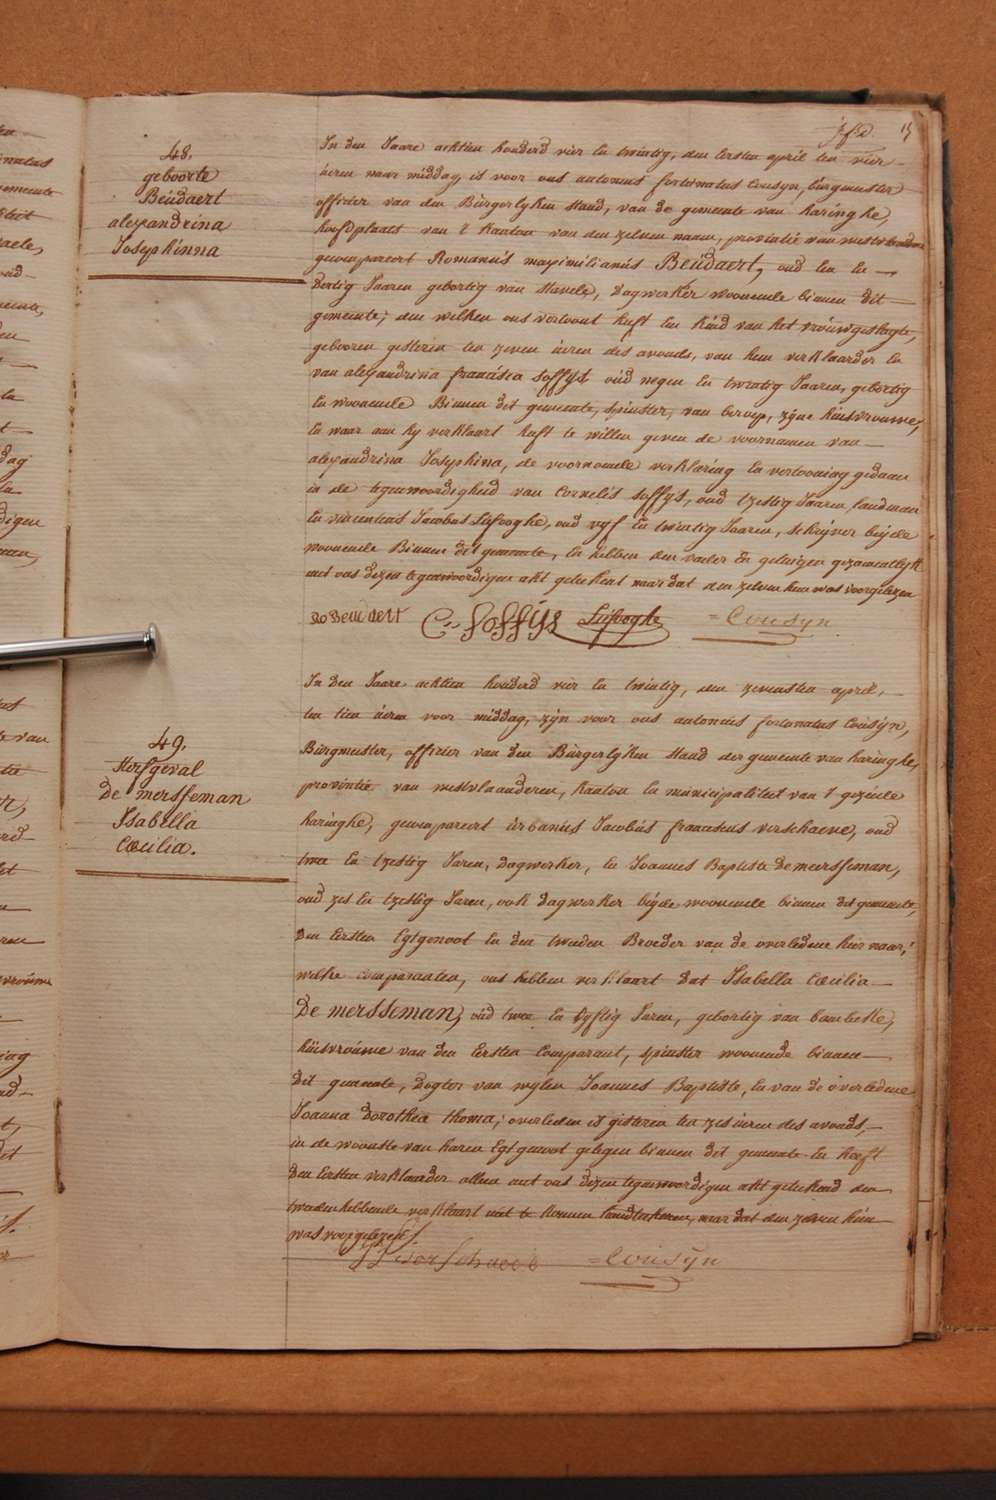 15
48.
geboorte
Beüdaert
alexandrina
Josephinna
In den Jaare achtien honderd vier en twintig, den eersten april ten vier
üeren naer middag, is voor ons antonius fortonatus Cousÿn, bürgmeester
officier van den Bürgerlyken stand, van de gemeente van haringhe,
hoofdplaats van 't kanton van den zelven naem, provintie van westvlaanderen
gecompareert Romanüs maximilianüs Beüdaert, oud een en
dertig Jaaren gebortig van Stavele, Dagwerker woonende binnen dit
gemeente, den welken ons vertoont heeft een kind van het vrouwgeslagte,
gebooren gisteren ten zeven üeren des avonds, van hem verklaarder en
van alexandrina francisca Soffÿs oüd negen en twintig Jaaren, gebortig
en woonende Binnen dit gemeente, spinster, van beroep, zÿne hüisvrouwe,
en waar aan hy verklaart heeft te willen geven de voornamen van
alexandrina Josephina, de voornoemde verklaring en vertooning gedaan
in de tegenwoordigheid van Cornelis Soffÿs, oud tzestig Jaaren, landman
en vincentius Jacobus Lisfooghe, oud vyf en twintig Jaaren, schrijver beÿde
woonende Binnen dit gemeente, en hebben den vader en getuigen gezamentlyk
met ons dezen tegenwoordigen akt geteekent naer dat den zelven hem was voorgelezen
C. Soffÿs Lisfooghe = Cousÿn
49.
sterfgeval
De mersseman
Isabella
Cœcilia.
In den Jaare achtien honderd vier en twintig, den zevensten april,
ten tien üeren voor middag, zÿn voor ons antonius fortonatus Cousÿn,
Bürgmeester, officier van den Bürgerlyken stand der gemeente van haringhe,
provintie van westvlaanderen, kanton en municipaliteit van 't gezeide
haringhe, gecompareert ürbanüs Jacobüs franciscus verschaeve, oud
twee en tzestig Jaren, dagwerker, en Joannes Baptiste De mersseman,
oud zes en tzestig Jaren, ook dagwerker beÿde woonende binnen dit gemeente,
den eersten Egtgenoot en den tweeden Broeder van de overledene hier naar,
welke comparanten, ons hebben verklaart dat Isabella Cœcilia
De mersseman, oüd twee en vyftig Jaren, gebortig van bambeke,
hüisvroüwe van den eersten Comparant, spinster woonende binnen
dit gemeente, Dogter van wylen Joannes Baptiste, en van de overledene
Joanna Dorothea thoma, overleden is gisteren ten zes üeren des avonds,
in de woonste van haren Egtgenoot gelegen binnen dit gemeente en heeft
den Eersten verklaarder alleen met ons dezen tegenwoordigen akt geteekend den
tweeden hebbende verklaart niet te konnen handteekenen, naer dat den zelven hün
was voorgelezen.
verschaeve = Cousÿn